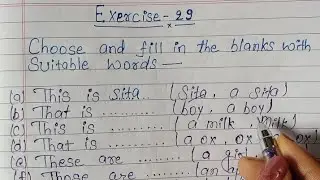 Exercise - 29
Choose and fill in the blanks with
suitable words —
(a) This is sita.. (Sita, a sita)
(b) That is ........ (boy, a boy)
(c) This is ......... (a milk, milk)
(d) That is ......... (a ox, ox ox)
(e) These are ......... (a
(f) Those are ........ (an